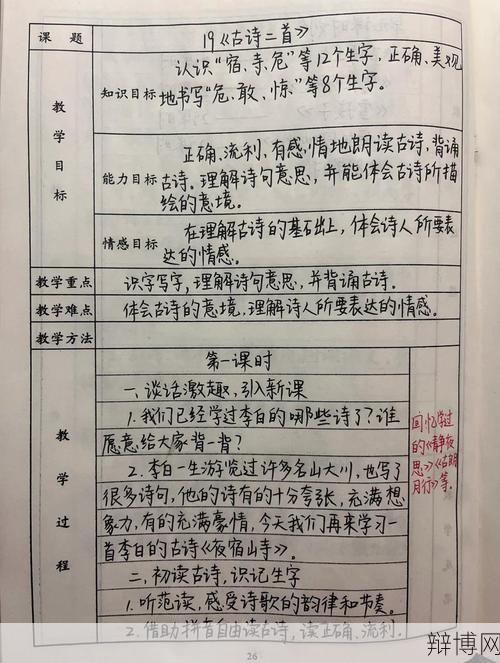 课 题
19《古诗二首》
教学目标
知识目标
认识“宿、寺、危”等12个生字,正确、美观
地书写“危、敢、惊”等8个生字。
能力目标
正确、流利、有感情地朗读古诗,背诵
古诗。理解诗句意思,并能体会古诗所描
绘的意境。
情感目标
在理解古诗的基础上,体会诗人所要表
达的情感。
教学重点
识字写字,理解诗句意思,并背诵古诗。
教学难点
体会古诗的意境,理解诗人所要表达的情感。
教学方法
教学过程
第一课时
一、谈话激趣,引入新课
1.我们已经学过李白的哪些诗了?谁
愿意给大家背一背?
2.李白一生游览过许多名山大川,也写了
很多诗句,他的诗有的十分夸张,充满想
象力,有的充满豪情,今天我们再来学习一
首李白的古诗《夜宿山寺》。
二、初读古诗,识记生字
1.听范读,感受诗歌的韵律和节奏。
2.借助拼音自由读古诗,读正确、流利。
回忆学过
的《静夜
思》《古朗
月行》等。
26
辩博网